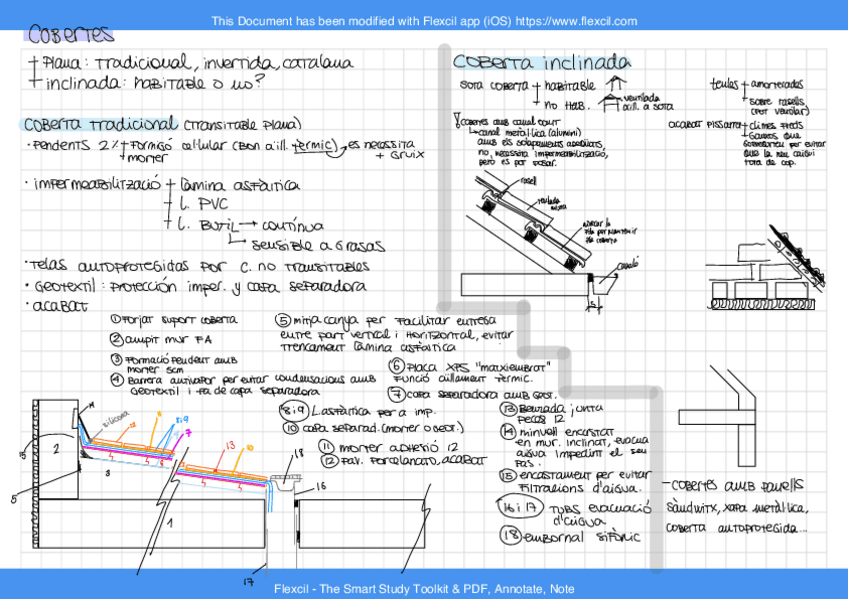 This Document has been modified with Flexcil app (iOS) https://www.flexcil.com
COBERTES
+ Plana: tradicional, invertida, catalana
+ inclinada: habitable o no?
COBERTA TRADICIONAL (TRANSITABLE PLANA)
· Pendents 2% + Formigó cel·lular (Bon aïll. tèrmic) → es necessita
+ gruix
+ morter
· impermeabilització + Làmina asfàltica
+ L. PVC
+ L. Butil → contínua
sensible a grasas
· Telas autoprotegidas por c. no transitables
· Geotextil: protección imper. y capa separadora
· acabat
① Forjat suport coberta
② ampit mur FA
③ Formació pendent amb
morter 5cm
④ Barrera antivapor per evitar condensacions amb
Geotextil i fa de capa separadora
⑤ mitja canya per facilitar entrega
entre part vertical i horitzontal, evitar
trencament làmina asfàltica
⑥ Placa XPS "matxiembrat"
Funció aïllament tèrmic.
⑦ capa separadora amb geot.
8i9 L.asfàltica per a imp.
⑩ capa separad. (morter o geot.)
⑪ morter adhesió 12
⑫ Pav. Porcelanato, acabat
⑬ Beurada junta
peces 12
⑭ minvell encastat
en mur. inclinat, evacua
aigua impedint el seu
pas.
⑮ encastament per evitar
filtracions d'aigua.
16 i 17 tubs evacuació
d'aigua
⑱ embornal sifònic
silicona
2
3
1
5
6
7
8i9
10
12
13
14
15
16
17
18
COBERTA inclinada
sota coberta + habitable
+ no hab.
ventilada
aïll. a sota
cobertes amb canal ocult
canal metàl·lica (alumini)
amb els solapaments adequats,
no necessita impermeabilització,
però es pot posar.
teules + amorterades
+ sobre rasells
(per ventilar)
acabat pissarra + climes freds
+ Ganxos que
sobresurten per evitar
que la neu caigui
tota de cop.
rasell
canaló
5
- cobertes amb panells
sàndwitx, xapa metàl·lica,
coberta autoprotegida...
Flexcil - The Smart Study Toolkit & PDF, Annotate, Note